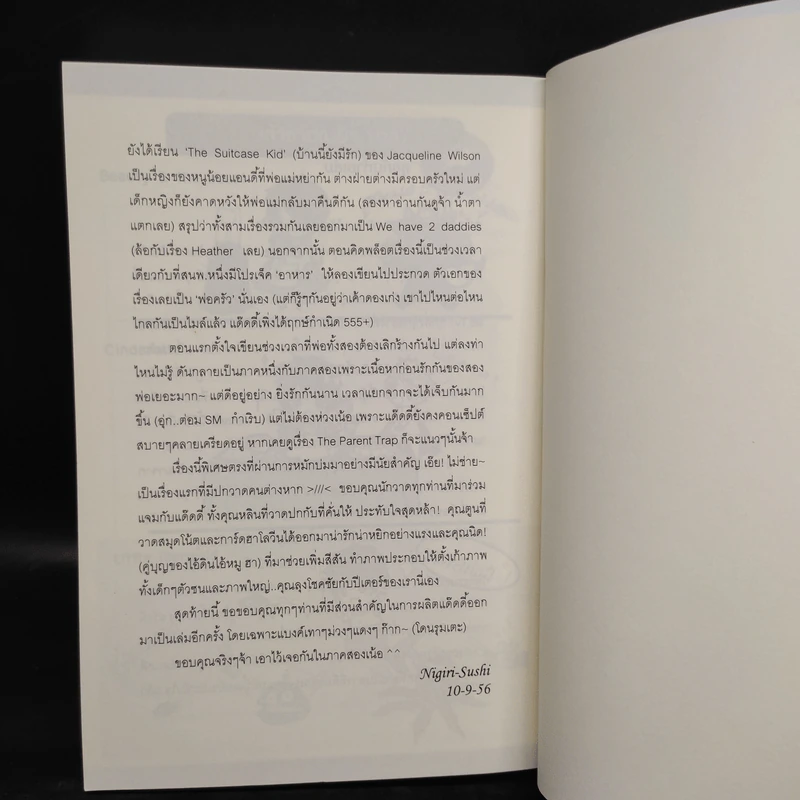 ยังได้เรียน 'The Suitcase Kid' (บ้านนี้ยังมีรัก) ของ Jacqueline Wilson
เป็นเรื่องของหนูน้อยแอนดี้ที่พ่อแม่หย่ากัน ต่างฝ่ายต่างมีครอบครัวใหม่ แต่
เด็กหญิงก็ยังคาดหวังให้พ่อแม่กลับมาคืนดีกัน (ลองหาอ่านกันดูจ้า น้ำตา
แตกเลย) สรุปว่าทั้งสามเรื่องรวมกันเลยออกมาเป็น We have 2 daddies
(ล้อกับเรื่อง Heather เลย) นอกจากนั้น ตอนคิดพล็อตเรื่องนี้เป็นช่วงเวลา
เดียวกับที่สนพ.หนึ่งมีโปรเจ็ค 'อาหาร' ให้ลองเขียนไปประกวด ตัวเอกของ
เรื่องเลยเป็น 'พ่อครัว' นั่นเอง (แต่ก็รู้ๆกันอยู่ว่าเค้าดองเก่ง เขาไปไหนต่อไหน
ไกลกันเป็นไมล์แล้ว แด๊ดดี้เพิ่งได้ฤกษ์กำเนิด 555+)
ตอนแรกตั้งใจเขียนช่วงเวลาที่พ่อทั้งสองต้องเลิกร้างกันไป แต่ลงท่า
ไหนไม่รู้ ดันกลายเป็นภาคหนึ่งกับภาคสองเพราะเนื้อหาก่อนรักกันของสอง
พ่อเยอะมาก~ แต่ดีอยู่อย่าง ยิ่งรักกันนาน เวลาแยกจากจะได้เจ็บกันมาก
ขึ้น (อุ่ก..ต่อม SM กำเริบ) แต่ไม่ต้องห่วงเน้อ เพราะแด๊ดดี้ยังคงคอนเซ็ปต์
สบายๆคลายเครียดอยู่ หากเคยดูเรื่อง The Parent Trap ก็จะแนวๆนั้นจ้า
เรื่องนี้พิเศษตรงที่ผ่านการหมักบ่มมาอย่างมีนัยสำคัญ เอ๊ย! ไม่ช่าย~
เป็นเรื่องแรกที่มีปกวาดคนต่างหาก >///< ขอบคุณนักวาดทุกท่านที่มาร่วม
แจมกับแด๊ดดี้ ทั้งคุณหลินที่วาดปกกับที่คั่นให้ ประทับใจสุดหล้า! คุณตูนที่
วาดสมุดโน้ตและการ์ดฮาโลวีนได้ออกมาน่ารักน่าหยิกอย่างแรงและคุณนิด!
(คู่บุญของไอ้ดินไอ้หมู ฮา) ที่มาช่วยเพิ่มสีสัน ทำภาพประกอบให้ตั้งเก้าภาพ
ทั้งเด็กๆตัวซนและภาพใหญ่..คุณลุงโชคชัยกับปีเตอร์ของเรานี่เอง
สุดท้ายนี้ ขอขอบคุณทุกๆท่านที่มีส่วนสำคัญในการผลิตแด๊ดดี้ออก
มาเป็นเล่มอีกครั้ง โดยเฉพาะแบงค์เทาๆม่วงๆแดงๆ ก๊าก~ (โดนรุมเตะ)
ขอบคุณจริงๆจ้า เอาไว้เจอกันในภาคสองเน้อ ^^
Nigiri-Sushi
10-9-56